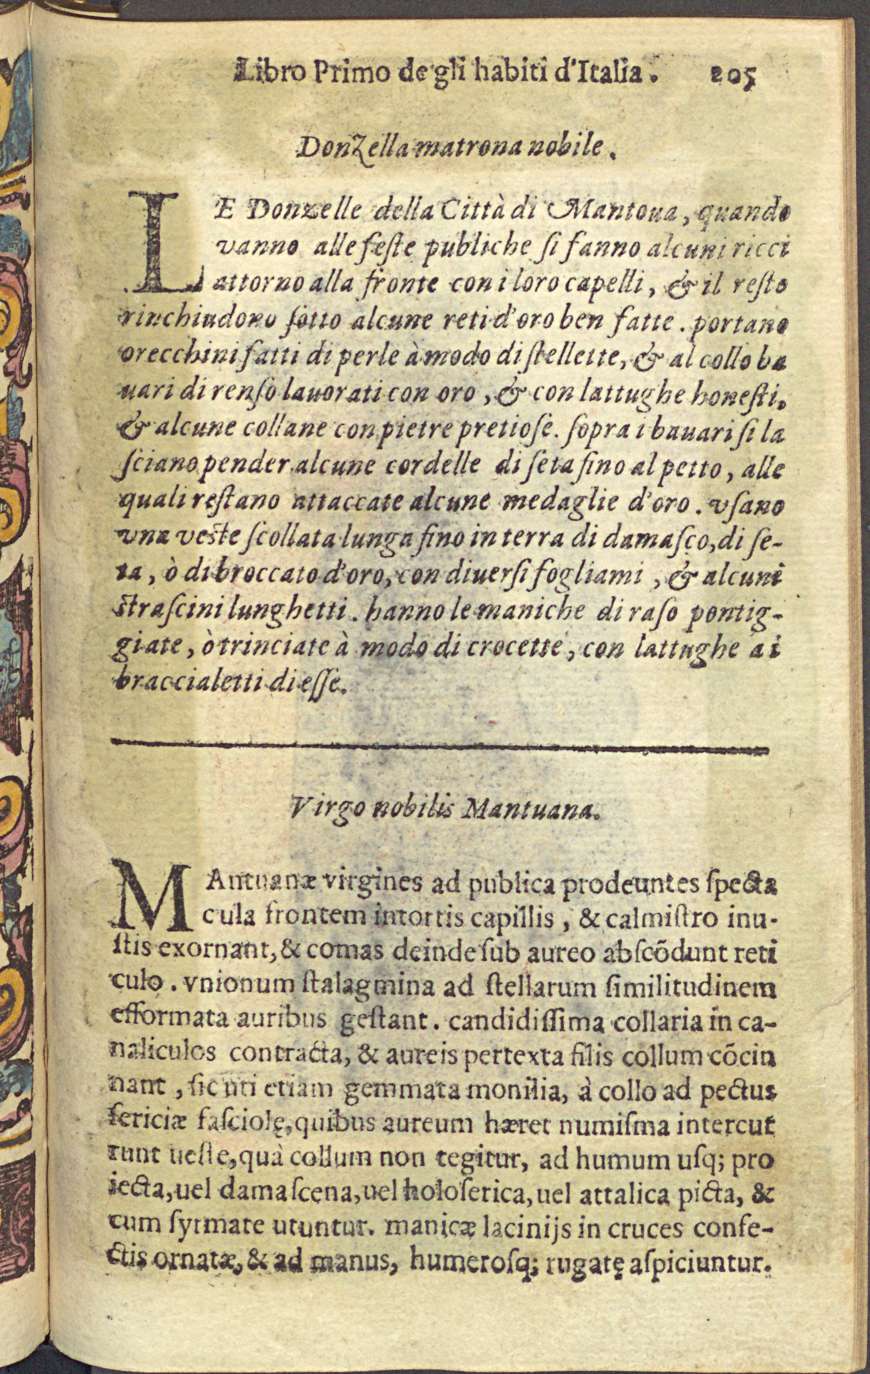 Libro Primo de gli habiti d'Italia. 205
Donzella matrona nobile.
LE Donzelle della Città di Mantoua, quando
vanno alle feste publiche si fanno alcuni ricci
attorno alla fronte con i loro capelli, & il resto
rinchiudono sotto alcune reti d'oro ben fatte. portano
orecchini fatti di perle à modo di stellette, & al collo ba
uari di renso lauorati con oro, & con lattughe honesti,
& alcune collane con pietre pretiose. sopra i bauari si la
sciano pender alcune cordelle di seta fino al petto, alle
quali restano attaccate alcune medaglie d'oro. vsano
vna veste scollata lunga fino in terra di damasco, di se-
ta, ò di broccato d'oro, con diuersi fogliami, & alcuni
strascini lunghetti. hanno le maniche di raso pontig-
giate, ò trinciate à modo di crocette, con lattughe a i
braccialetti di esse.
Virgo nobilis Mantuana.
MAntuanæ virgines ad publica prodeuntes specta
cula frontem intortis capillis, & calmistro inu-
stis exornant, & comas deinde sub aureo abscōdunt reti
culo. vnionum stalagmina ad stellarum similitudinem
efformata auribus gestant. candidissima collaria in ca-
naliculos contracta, & aureis pertexta filis collum cōcin
nant, sicuti etiam gemmata monilia, à collo ad pectus
sericiæ fasciolę, quibus aureum hæret numisma intercut
runt ueste, qua collum non tegitur, ad humum usq; pro
iecta, uel damascena, uel holoserica, uel attalica picta, &
cum syrmate utuntur. manicæ lacinijs in cruces confe-
ctis ornatæ, & ad manus, humerosq; rugatę aspiciuntur.